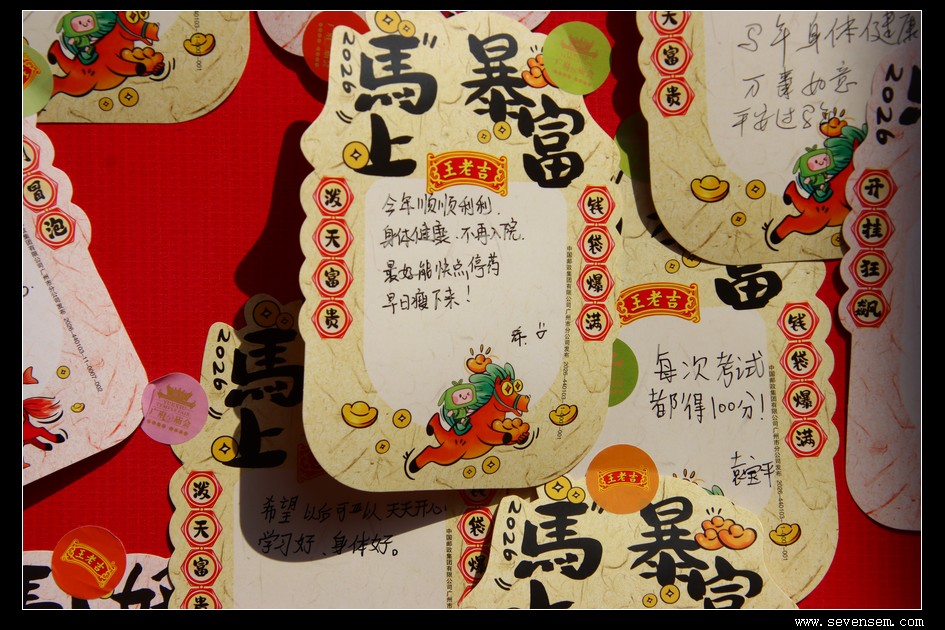 2026
馬上
暴富
王老吉
泼天富贵
钱袋爆满
今年顺顺利利.
身体健康.不再入院.
最好能快点停药
早日瘦下来!
中国邮政集团有限公司广州市分公司发布 2026-440103-11-0007-001
天富贵
今年身体健康
万事如意
2026
开挂狂飙
冒泡
2026-440103-11-0007-002
富
王老吉
钱袋爆满
每次考试
都得100分!
中国邮政集团有限公司广州市分公司发布
2026
馬上
泼天富贵
希望以后可以天天开心,
学习好,身体好。
袋爆
王老吉
2026
馬
暴富
王老吉
www.sevensem.com